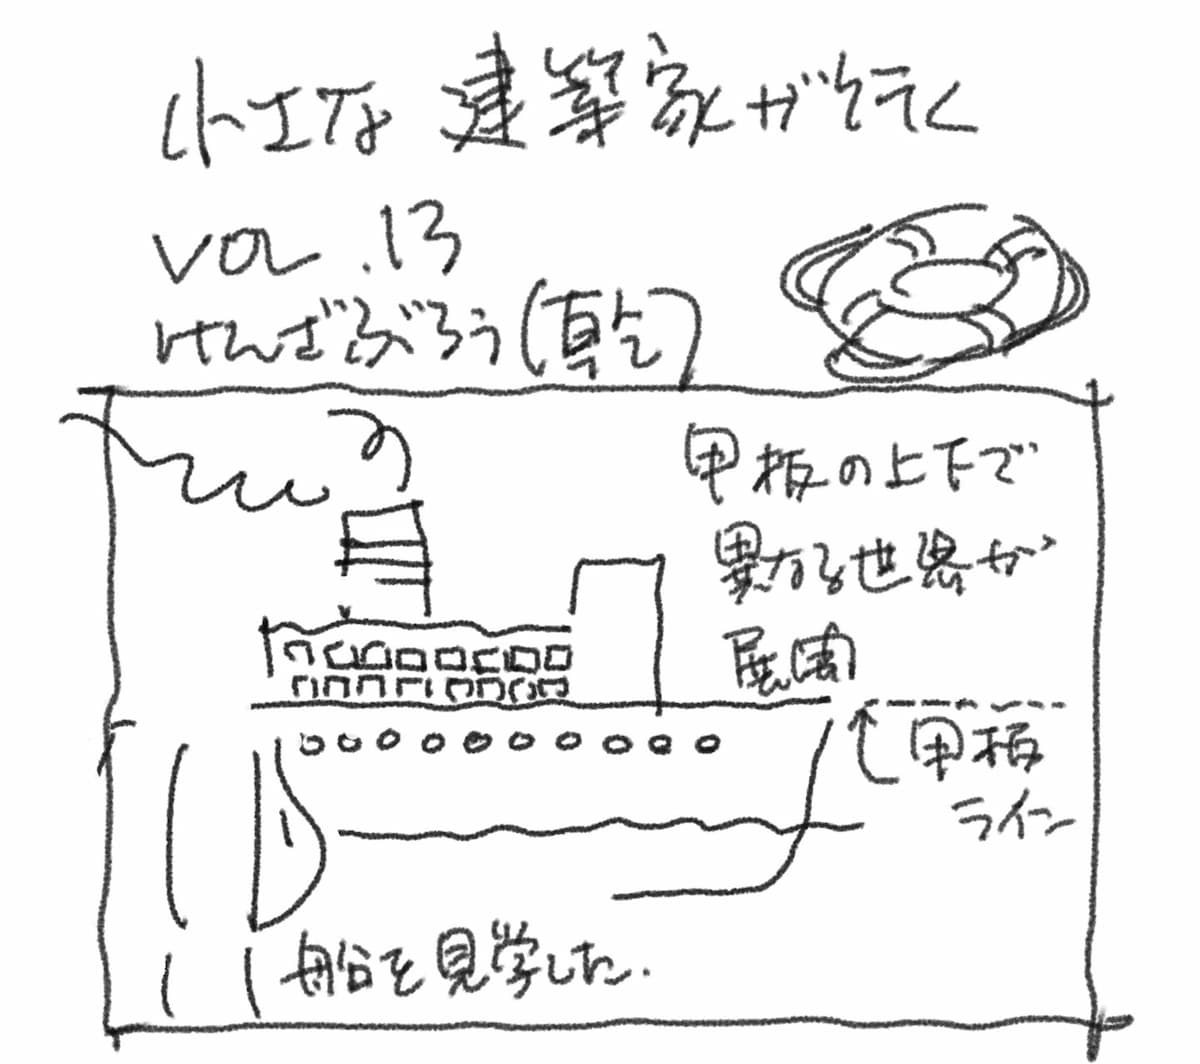 小さな建築家が行く
VOL.13
けんざぶろう(乾)
甲板の上下で
異なる世界が
展開
甲板
ライン
船を見学した.